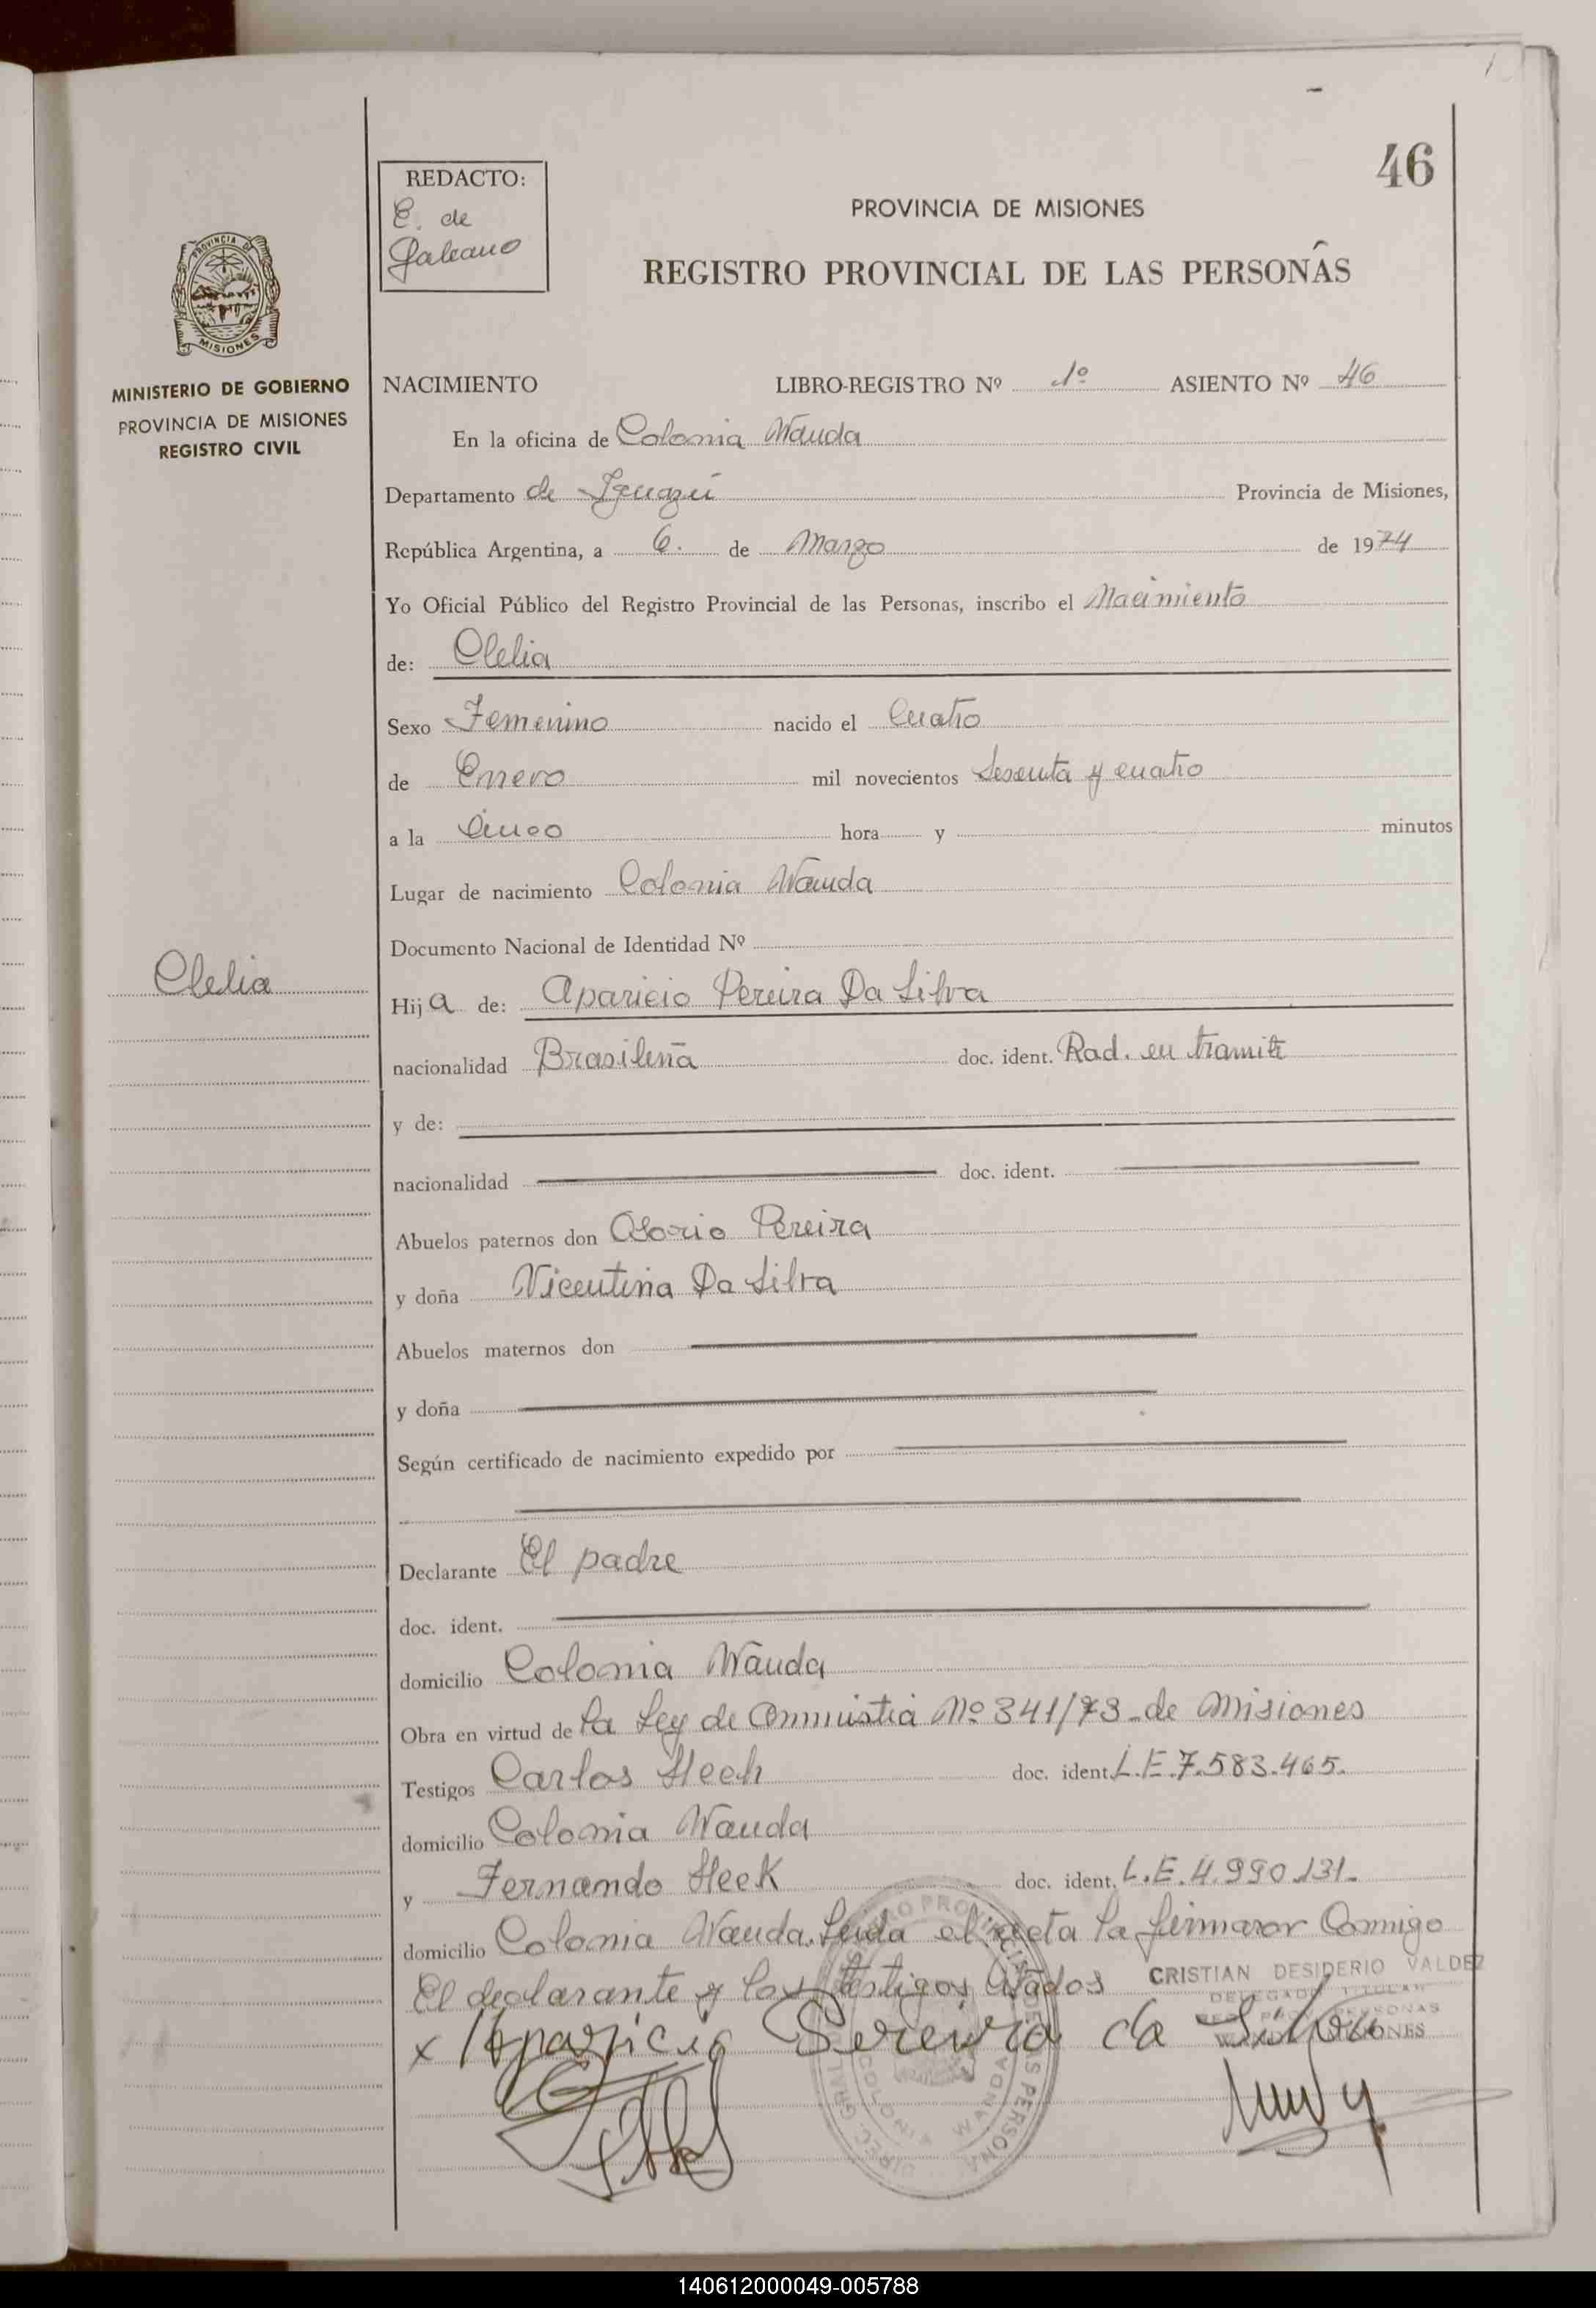 46
REDACTO:
E. de
Galeano
PROVINCIA DE MISIONES
REGISTRO PROVINCIAL DE LAS PERSONAS
PROVINCIA DE
MISIONES
MINISTERIO DE GOBIERNO
PROVINCIA DE MISIONES
REGISTRO CIVIL
NACIMIENTO LIBRO-REGISTRO Nº 1º ASIENTO Nº 46
En la oficina de Colonia Wanda
Departamento de Iguazú Provincia de Misiones,
República Argentina, a 6. de Marzo de 1974
Yo Oficial Público del Registro Provincial de las Personas, inscribo el Nacimiento
de: Clelia
Sexo Femenino nacido el Cuatro
de Enero mil novecientos Sesenta y cuatro
a la Cinco hora y minutos
Lugar de nacimiento Colonia Wanda
Documento Nacional de Identidad Nº
Clelia
Hija de: Aparicio Pereira Da Silva
nacionalidad Brasileña doc. ident. Rad. en tramite
y de:
nacionalidad doc. ident.
Abuelos paternos don Osorio Pereira
y doña Vicentina Da Silva
Abuelos maternos don
y doña
Según certificado de nacimiento expedido por
Declarante El padre
doc. ident.
domicilio Colonia Wanda
Obra en virtud de La Ley de Amnistia Nº 341/73-de Misiones
Testigos Carlos Heck doc. ident. L.E.7.583.465.
domicilio Colonia Wanda
y Fernando Heek doc. ident. L.E.4.990.131.
domicilio Colonia Wanda. Leida el acta la firmaror Conmigo
El declarante y los testigos Citados
CRISTIAN DESIDERIO VALDEZ
x Aparicio Pereira da Silva
COLONIA WANDA
140612000049-005788